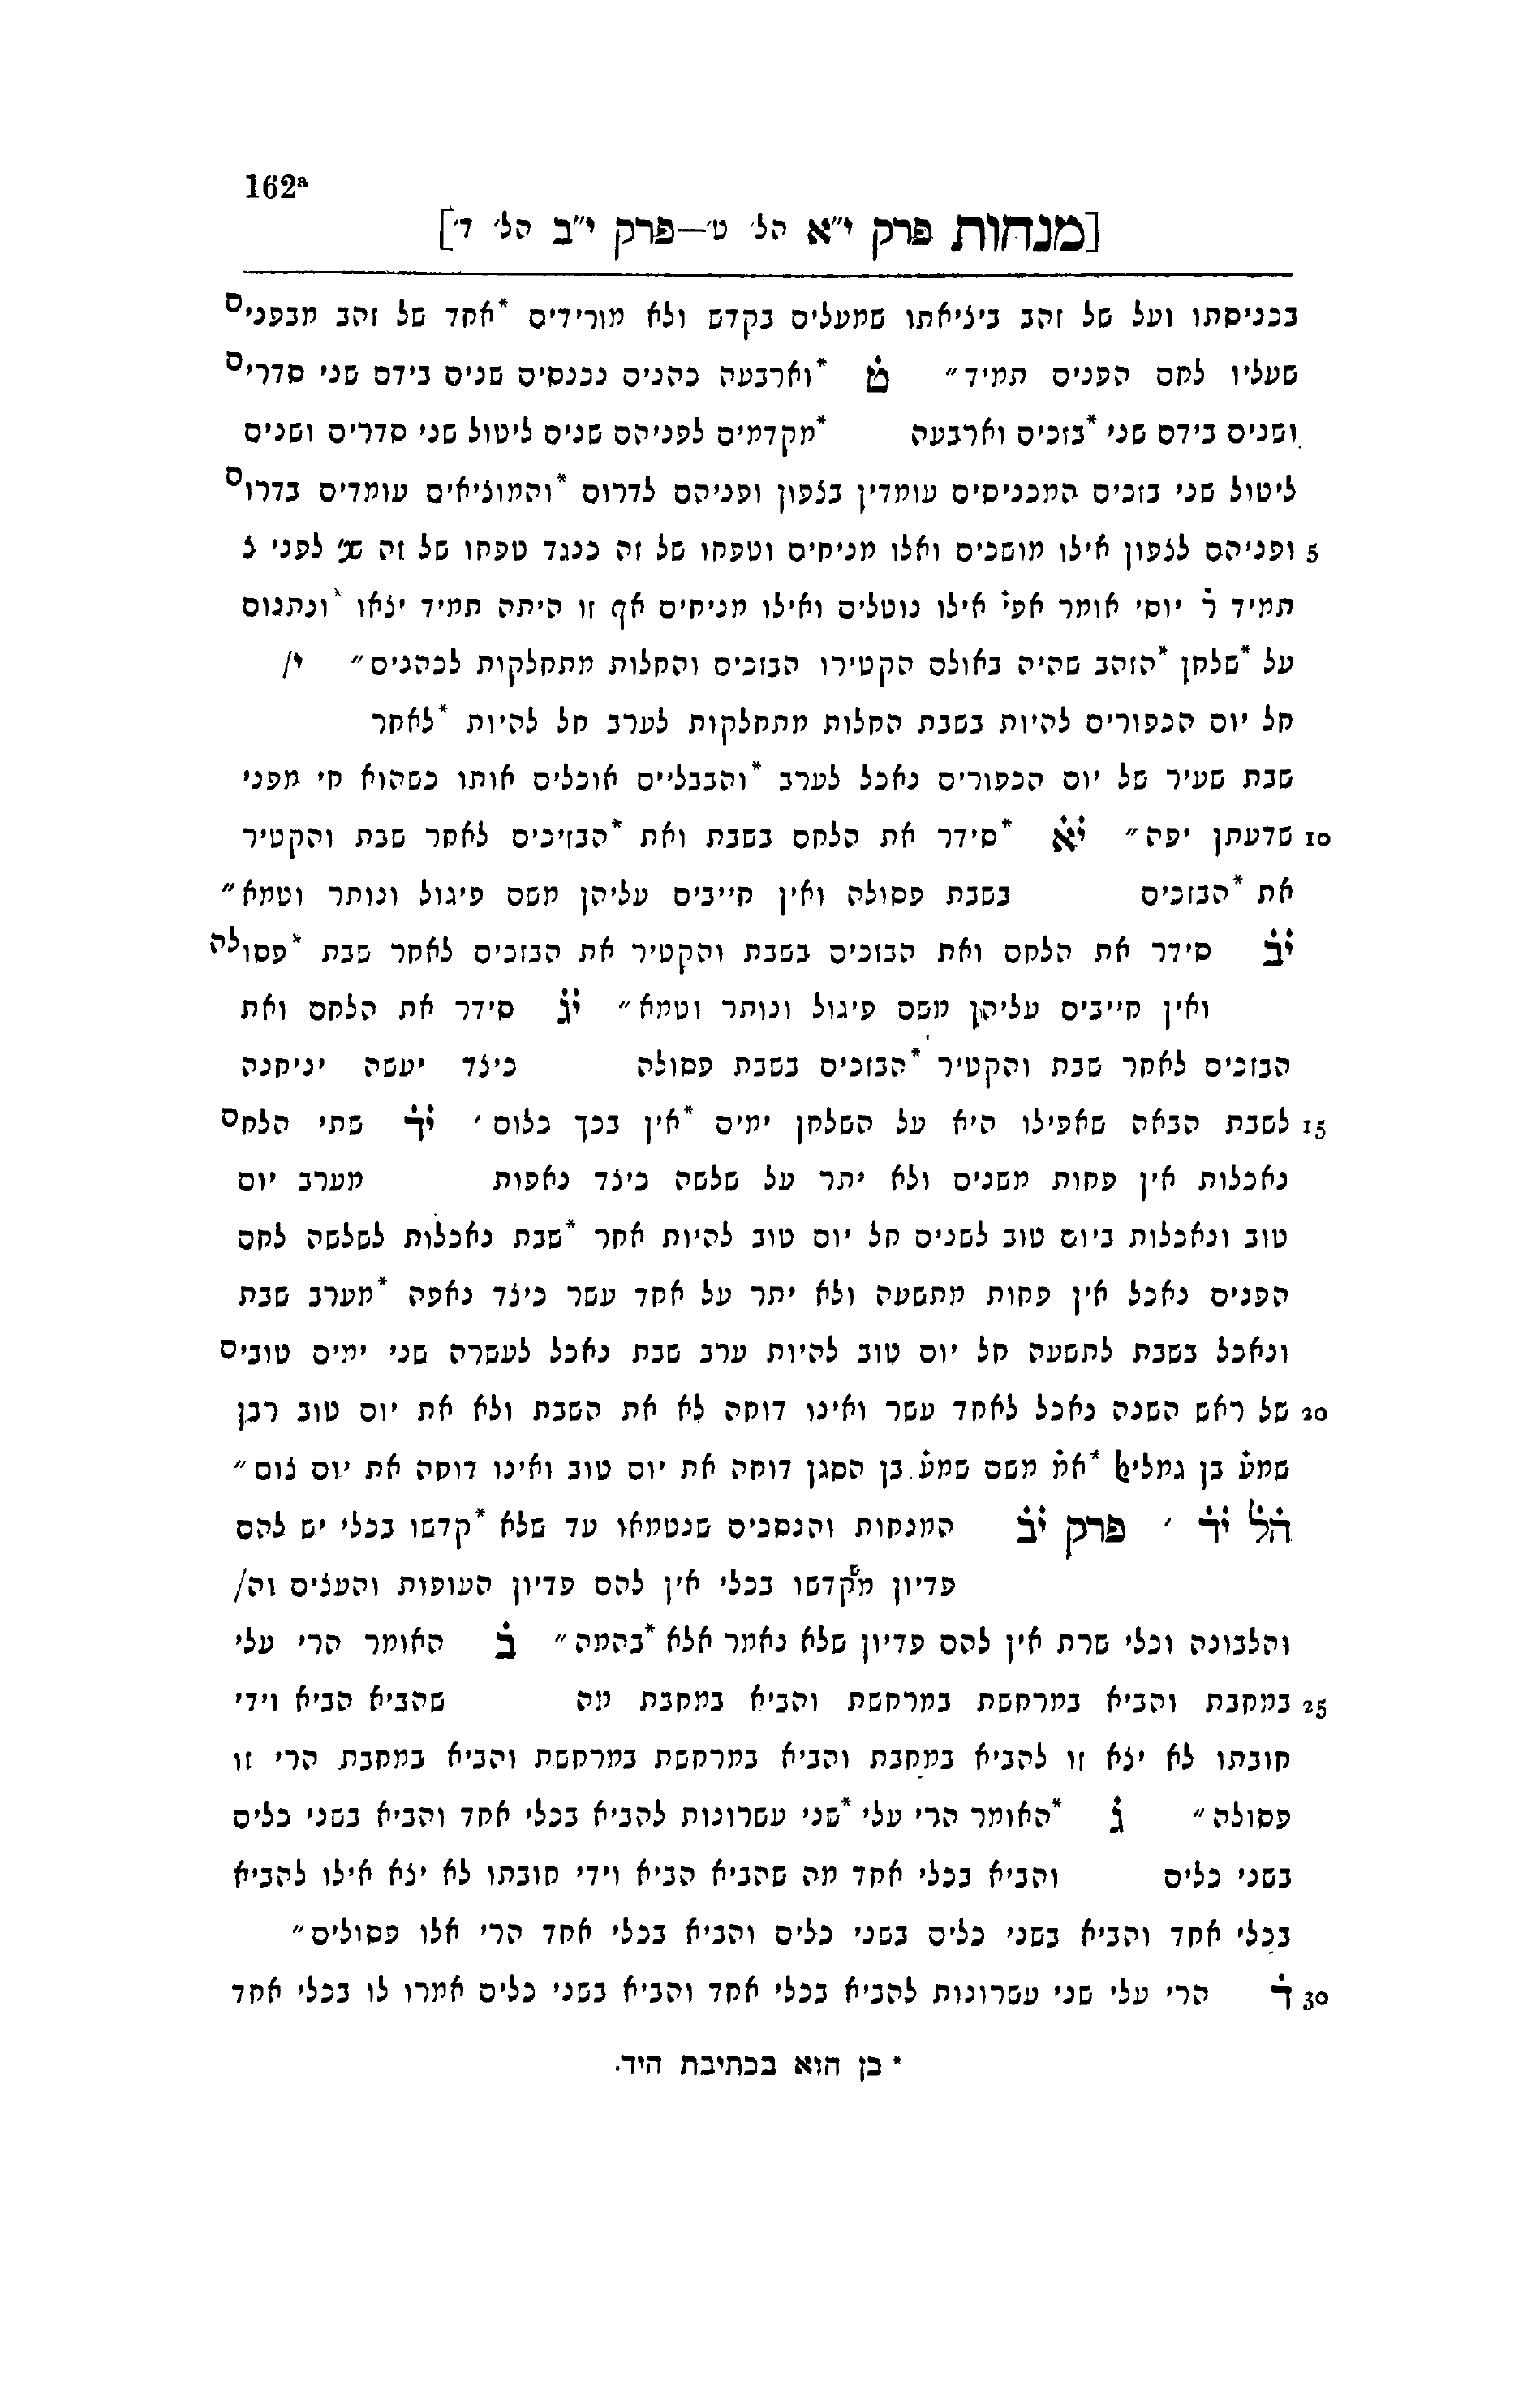 162ᵃ
[מנחות פרק י״א הל׳ ט׳—פרק י״ב הל׳ ד׳]
בכניסתו ועל של זהב ביציאתו שמעלים בקדש ולא מורידים *אחד של זהב מבפנים
שעליו לחם הפנים תמיד״ ט̇ *וארבעה כהנים נכנסים שנים בידם שני סדרים
ושנים בידם שני *בזכים וארבעה *מקדמים לפניהם שנים ליטול שני סדרים ושנים
ליטול שני בזכים המכניסים עומדין בצפון ופניהם לדרום *והמוציאים עומדים בדרום
5 ופניהם לצפון אילו מושכים ואלו מניחים וטפחו של זה כנגד טפחו של זה לפני צ
תמיד ר̇ יוסי אומר אפי̇ אילו נוטלים ואילו מניחים אף זו היתה תמיד יצאו *ונתנום
על *שלחן *הזהב שהיה באולם הקטירו הבזכים והחלות מתחלקות לכהנים״ י/
חל יום הכפורים להיות בשבת החלות מתחלקות לערב חל להיות *לאחר
שבת שעיר של יום הכפורים נאכל לערב *והבבליים אוכלים אותו כשהוא חי מפני
10 שדעתן יפה״ י̇א̇ *סידר את הלחם בשבת ואת *הבזיכים לאחר שבת והקטיר
את *הבזכים בשבת פסולה ואין חייבים עליהן משם פיגול ונותר וטמא״
י̇ב̇ סידר את הלחם ואת הבזכים בשבת והקטיר את הבזכים לאחר שבת *פסולה
ואין חייבים עליהן משם פיגול ונותר וטמא״ י̇ג̇ סידר את הלחם ואת
הבזכים לאחר שבת והקטיר *הבזכים בשבת פסולה כיצד יעשה יניחנה
15 לשבת הבאה שאפילו היא על השלחן ימים *אין בכך כלום׳ י̇ד̇ שתי הלחם
נאכלות אין פחות משנים ולא יתר על שלשה כיצד נאפות מערב יום
טוב ונאכלות ביום טוב לשנים חל יום טוב להיות אחר *שבת נאכלות לשלשה לחם
הפנים נאכל אין פחות מתשעה ולא יתר על אחד עשר כיצד נאפה *מערב שבת
ונאכל בשבת לתשעה חל יום טוב להיות ערב שבת נאכל לעשרה שני ימים טובים
20 של ראש השנה נאכל לאחד עשר ואינו דוחה לא את השבת ולא את יום טוב רבן
שמע̇ בן גמליא̇ל *אמ̇ משם שמע̇ בן הסגן דוחה את יום טוב ואינו דוחה את יום צום״
ה̇ל̇ י̇ד̇ ׳ פרק י̇ב̇ המנחות והנסכים שנטמאו עד שלא *קדשו בכלי יש להם
פדיון משקדשו בכלי אין להם פדיון העופות והעצים וה/
והלבונה וכלי שרת אין להם פדיון שלא נאמר אלא *בהמה״ ב̇ האומר הרי עלי
25 במחבת והביא במרחשת במרחשת והביא במחבת מה שהביא הביא וידי
חובתו לא יצא זו להביא במחבת והביא במרחשת במרחשת והביא במחבת הרי זו
פסולה״ ג̇ *האומר הרי עלי *שני עשרונות להביא בכלי אחד והביא בשני כלים
בשני כלים והביא בכלי אחד מה שהביא הביא וידי חובתו לא יצא אילו להביא
בכלי אחד והביא בשני כלים בשני כלים והביא בכלי אחד הרי אלו פסולים״
30 ד̇ הרי עלי שני עשרונות להביא בכלי אחד והביא בשני כלים אמרו לו בכלי אחד
* כן הוא בכתיבת היד.